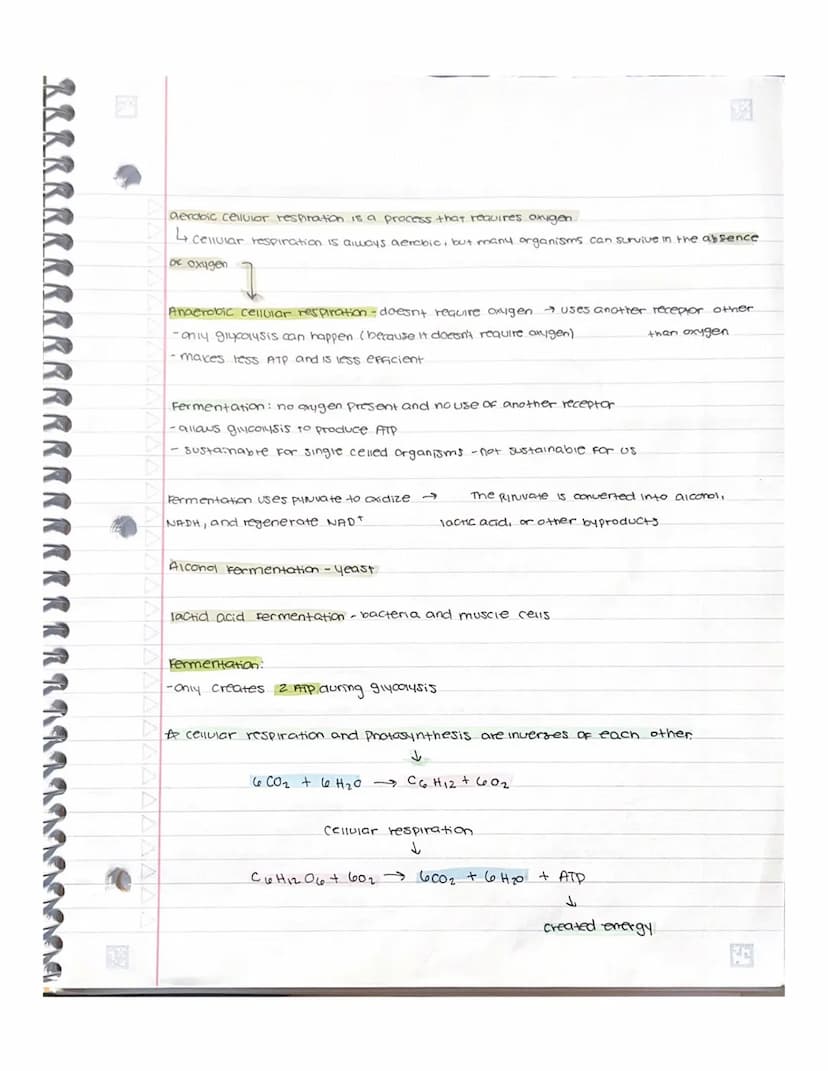 aerobic cellular respiration is a process that requires oxygen.
↳ cellular respiration is always aerobic, but many organisms can survive in the absence
of oxygen
Anaerobic cellular respiration - doesnt require oxygen → uses another receptor other
- only glycolysis can happen (because it doesn't require oxygen) than oxygen
- makes less ATP and is less efficient
Fermentation: no oxygen present and no use of another receptor
- allows glycolysis to produce ATP
- sustainable for single celled organisms - not sustainable for us
Fermentation uses pyruvate to oxidize → The pyruvate is converted into alcohol,
NADH, and regenerate NAD⁺ lactic acid, or other byproducts
Alcohol fermentation - yeast
lactid acid fermentation - bacteria and muscle cells
Fermentation:
- only creates 2 ATP during glycolysis
☆ cellular respiration and photosynthesis are inverses of each other.
↓
6CO₂ + 6H₂O → C₆H₁₂ + 6O₂
cellular respiration
↓
C₆H₁₂O₆ + 6O₂ → 6CO₂ + 6H₂O + ATP
↓
created energy